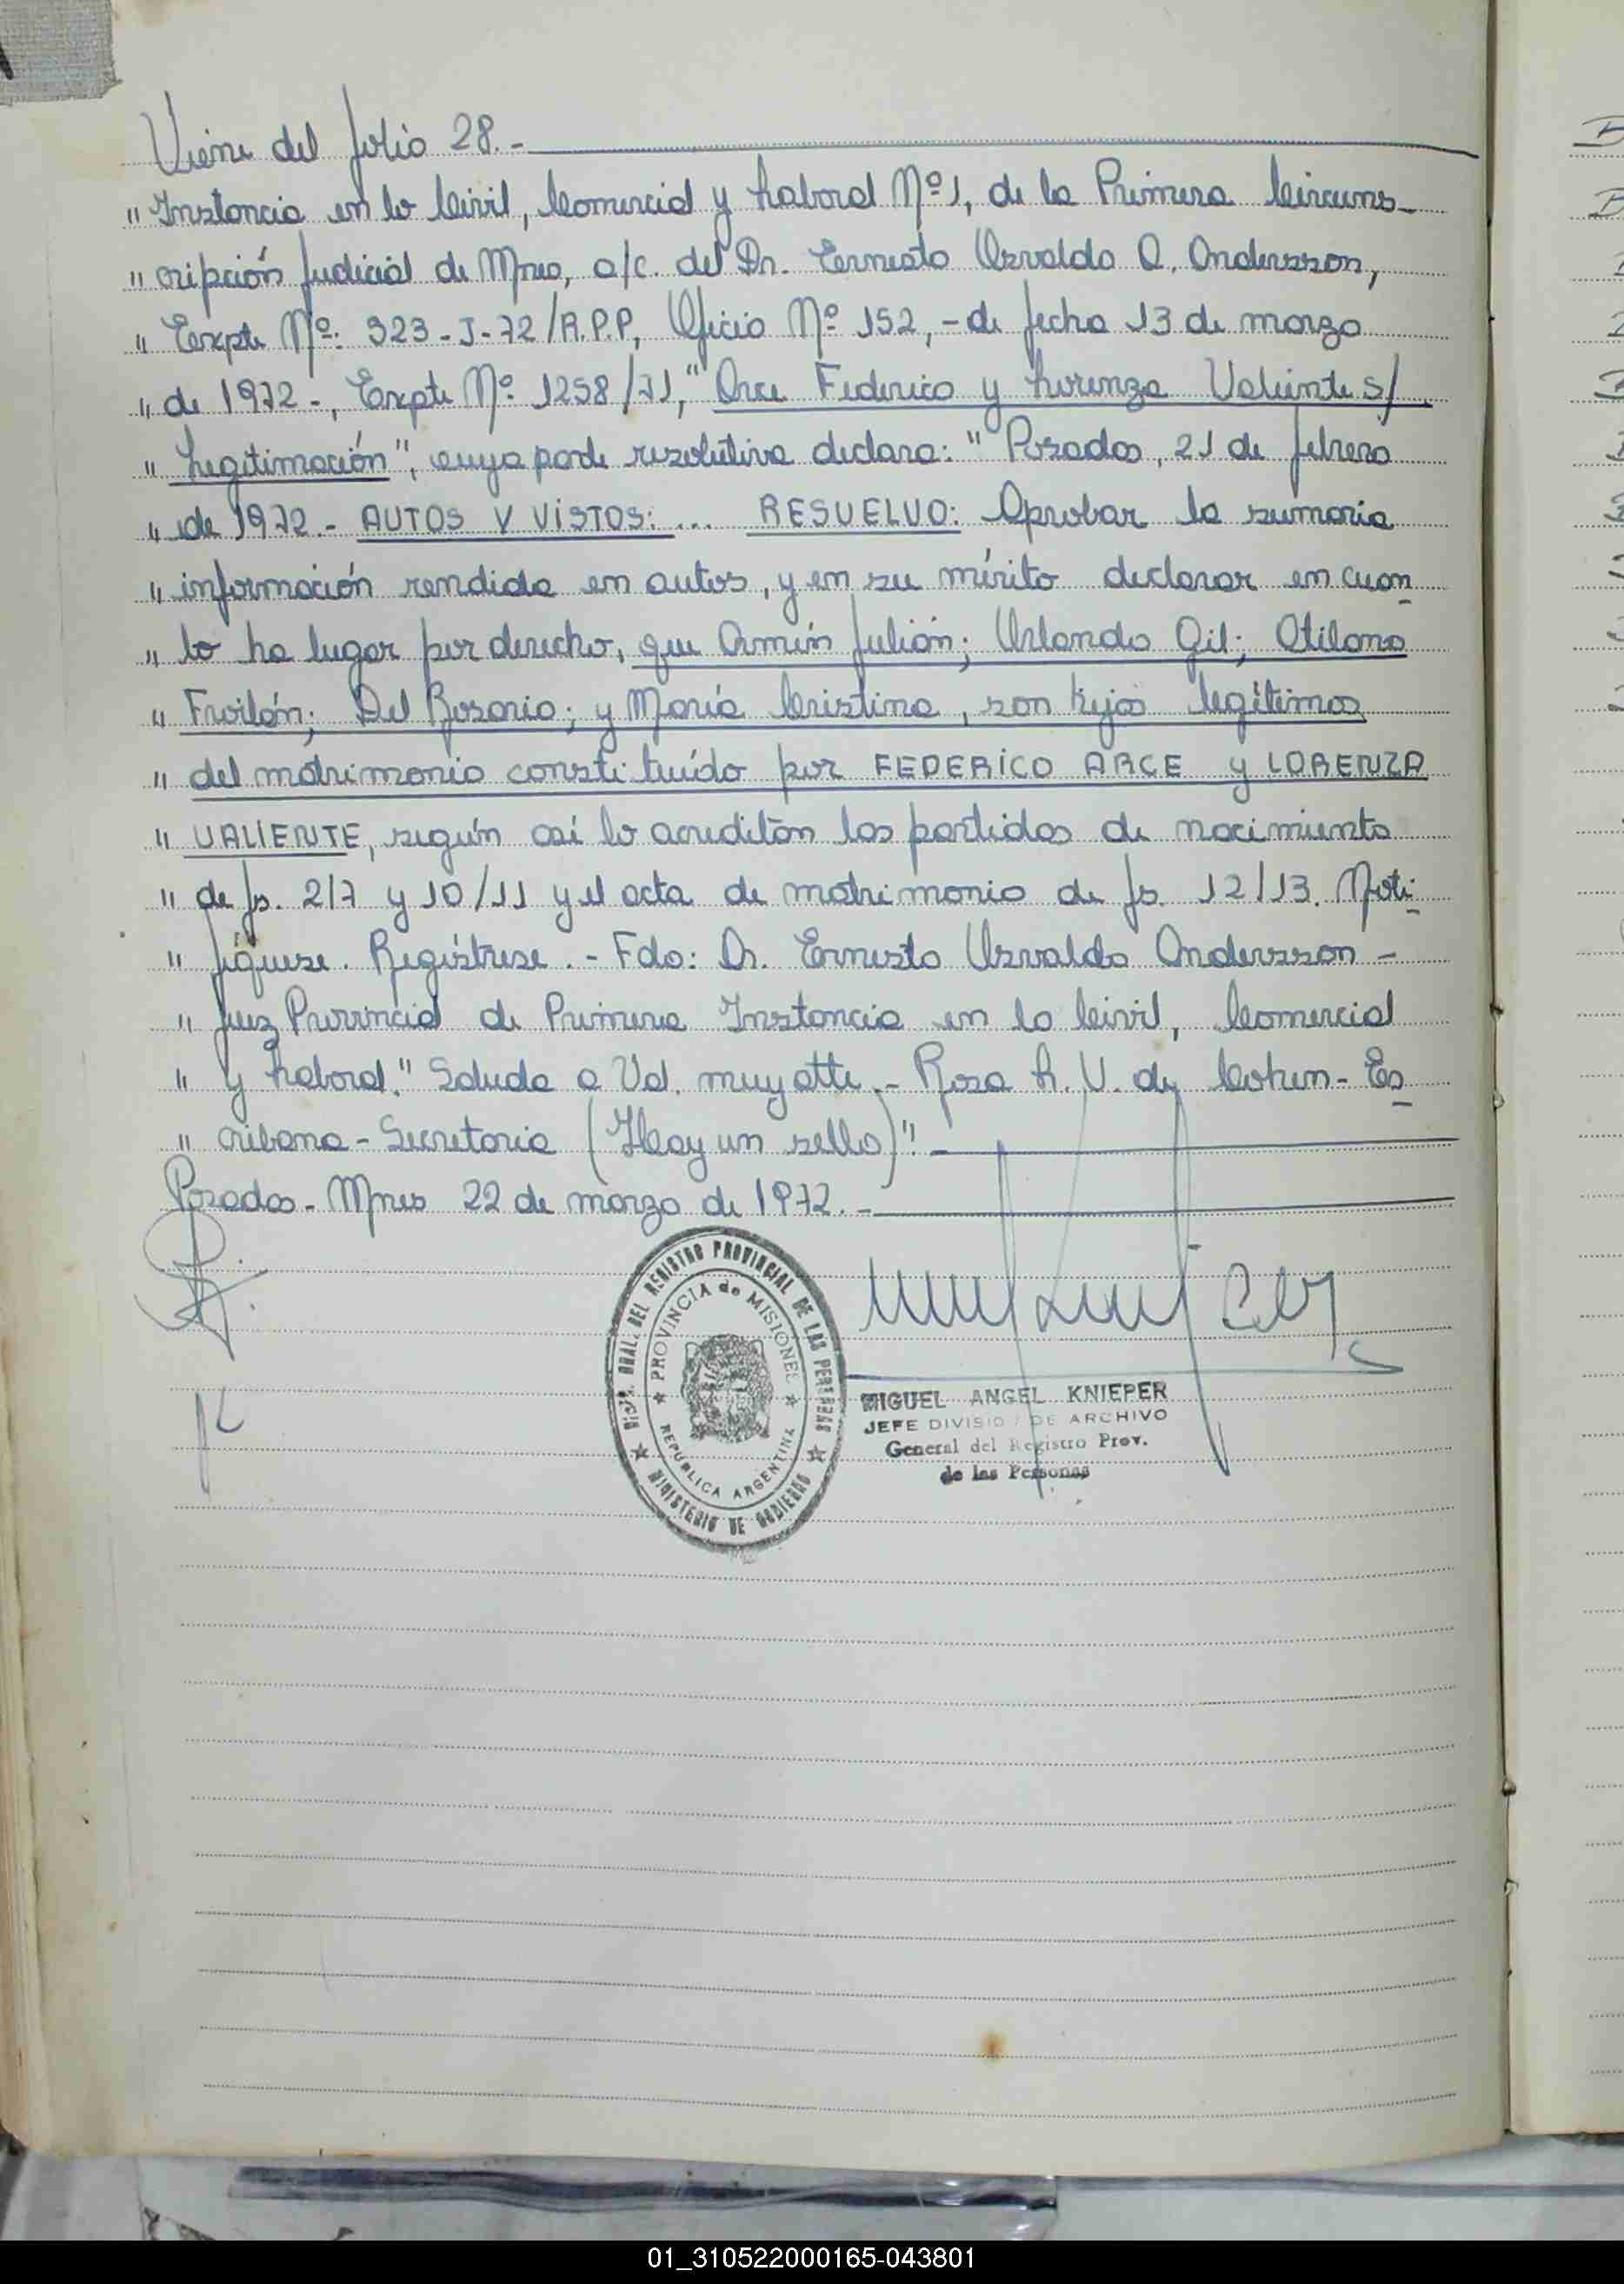 Viene del folio 28.-
" Instancia en lo Civil, Comercial y Laboral Nº1, de la Primera Circuns-
" cripción Judicial de Mnes, a/c. del Dr. Ernesto Osvaldo Q. Andersson,
" Expte Nº: 323-J-72/R.P.P, Oficio Nº 152,- de fecha 13 de marzo
" de 1972-, Expte Nº 1258/71," Arce Federico y Lorenza Valiente s/
" Legitimación", cuya parte resolutiva declara: " Posadas, 21 de febrero
" de 1972.- AUTOS Y VISTOS: ... RESUELVO: Aprobar la sumaria
" información rendida en autos, y en su mérito declarar en cuan
" to ha lugar por derecho, que Armín Julián; Orlando Gil; Atilano
" Froilán; Del Rosario; y María Cristina, son hijos legítimos
" del matrimonio constituído por FEDERICO ARCE y LORENZA
" VALIENTE, según así lo acreditan las partidas de nacimiento
" de fs. 2/7 y 10/11 y el acta de matrimonio de fs. 12/13. Noti-
" fíquese. Regístrese.- Fdo: Dr. Ernesto Osvaldo Andersson -
" Juez Provincial de Primera Instancia en lo Civil, Comercial
" y Laboral." Saluda a Ud. muy atte.- Rosa R. V. de Cohen- Es
" cribana - Secretaria (Hay un sello)".
Posadas - Mnes 22 de marzo de 1972.-
DIREC. GRAL. DEL REGISTRO PROVINCIAL DE LAS PERSONAS
PROVINCIA de MISIONES
REPUBLICA ARGENTINA
MINISTERIO DE GOBIERNO
MIGUEL ANGEL KNIEPER
JEFE DIVISION DE ARCHIVO
General del Registro Prov.
de las Personas
01_310522000165-043801